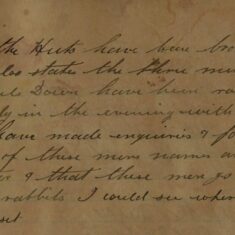 the Huts have been bro
las states the three me
Down have been ra
ly in the evening with
have made enquiries & fo
of these mens names a
& that these men go
rabbits I could see wher
set